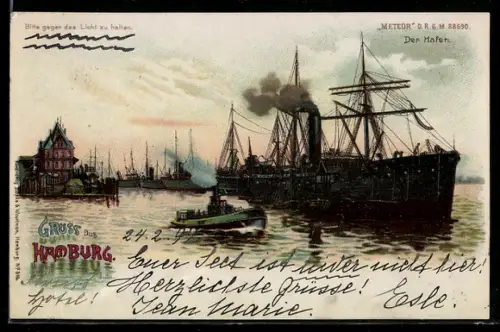 Bitte gegen das Licht zu halten.
„METEOR" D.R.G.M. 88690.
Der Hafen.
GRUSS aus
HAMBURG.
24.2.
Euer Sect ist leider nicht hier!
Herzlichste Grüsse!
Hotel!
Jean Marie.